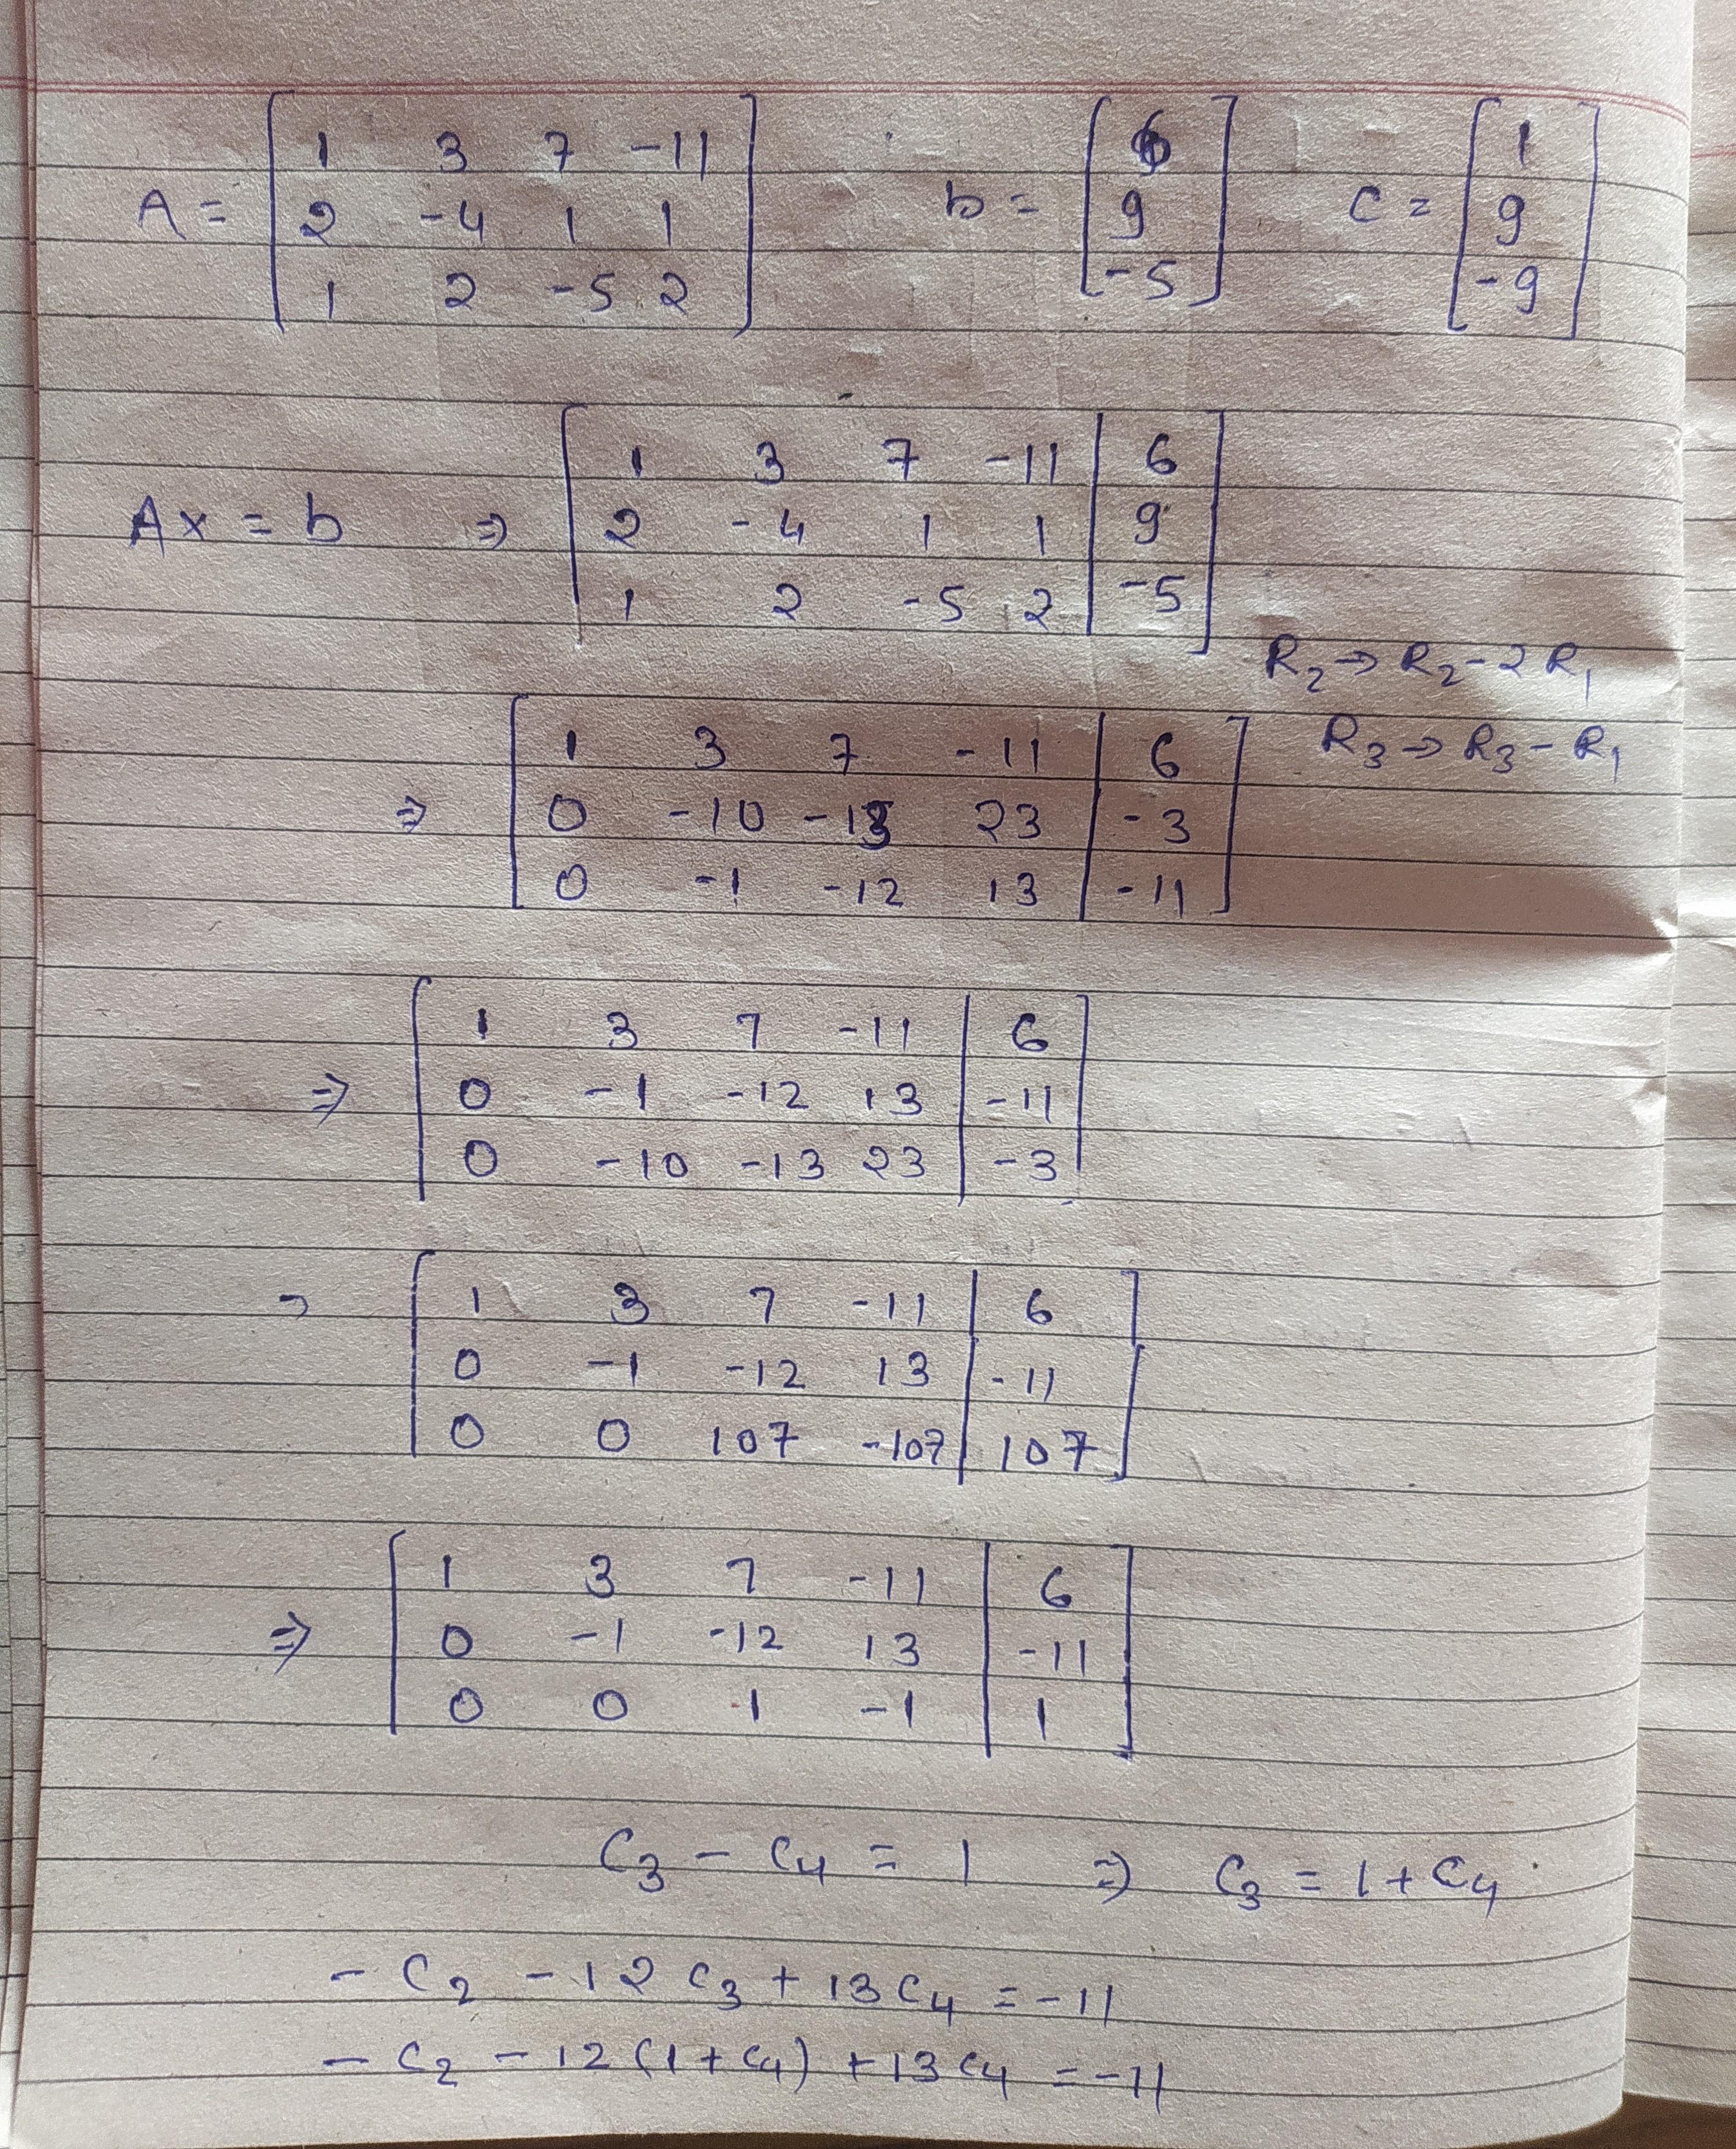 A = [ 1 3 7 -11 b = [ 6 c = [ 1
2 -4 1 1 9 9
1 2 -5 2 ] -5 ] -9 ]
Ax = b ⇒ [ 1 3 7 -11 | 6
2 -4 1 1 | 9
1 2 -5 2 | -5 ]
R₂ → R₂ - 2R₁
R₃ → R₃ - R₁
⇒ [ 1 3 7 -11 | 6
0 -10 -13 23 | -3
0 -1 -12 13 | -11 ]
⇒ [ 1 3 7 -11 | 6
0 -1 -12 13 | -11
0 -10 -13 23 | -3 ]
[ 1 3 7 -11 | 6
0 -1 -12 13 | -11
0 0 107 -107 | 107 ]
⇒ [ 1 3 7 -11 | 6
0 -1 -12 13 | -11
0 0 1 -1 | 1 ]
C₃ - C₄ = 1 ⇒ C₃ = 1 + C₄
- C₂ - 12 C₃ + 13 C₄ = -11
- C₂ - 12 (1 + C₄) + 13 C₄ = -11